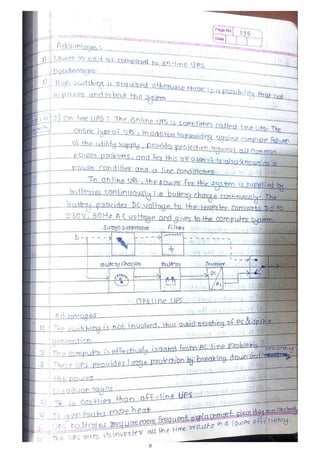 Page No. 135
Date
Advantages:
1) Lower in cost as compared to on-line UPS
Disadvantages
1) High switching is required otherwise there is a possibility that
in power and reboot the system
2] On line UPS: The online UPS is sometimes called true UPS. The
online type of UPS, in addition to providing against complete failure
of the utility supply, provides protection against all common
power problems, and for this reason it is also known as a
power conditioner and a line conditioner.
In online UPS, the power for the system is supplied by
batteries continuously i.e. battery charge continuously. The
battery provides DC voltage to the inverter converts DC to
230V, 50Hz AC voltage and gives to the computer system
Surge suppressor Filter
Battery charger Battery Inverter
DC
AC
ONLine UPS
Advantages
1) The switching is not involved, thus avoid resetting of PC & spike
generation
2) The computer is effectively isolated from AC line problems
3) These UPS provides large protection by breaking down and
the power
Disadvantages
1) It is costlier than off-line UPS
2) It generates more heat
3) UPS batteries require more frequent replacement since they run constantly
4) The UPS runs its inverter all the time results in a lower efficiency.